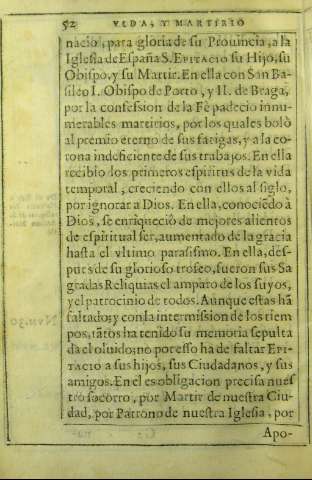 52 VIDA, Y MARTIRIO
nació, para gloria de su Prouincia, a la
Iglesia de España S. EPITACIO su Hijo, su
Obispo, y su Martir. En ella con San Ba-
sileo I. Obispo de Porto, y II. de Braga,
por la confession de la Fè padecio innu-
merables martirios, por los quales bolò
al premio eterno de sus fatigas, y a la co-
rona indeficiente de sus trabajos. En ella
recibio los primeros espiritus de la vida
temporal, creciendo con ellos al siglo,
por ignorar a Dios. En ella, conociẽdo à
Dios, se enriqueciò de mejores alientos
de espiritual ser, aumentado de la gracia
hasta el vltimo parasismo. En ella, des-
pues de su glorioso trofeo, fueron sus Sa
gradas Reliquias el amparo de los suyos,
y el patrocinio de todos. Aunque estas hã
faltado; y con la intermission de los tiem
pos, tãtos ha tenido su memoria sepulta
da el oluido; no por esso ha de faltar EPI-
TACIO a sus hijos, sus Ciudadanos, y sus
amigos. En el es obligacion precisa nues
tro socorro, por Martir de nuestra Ciu-
dad, por Patrono de nuestra Iglesia, por
Apo-